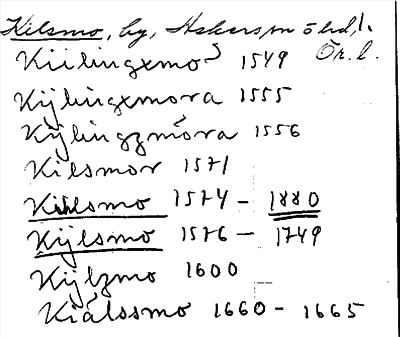 Kilsmo, by, Askers sn o hd,
Ör. l.
Kiilingxmo 1549
Kijlingxmora 1555
Kijlingzmora 1556
Kilsmor 1571
Kihlsmo 1574 - 1880
Kijlsmo 1576 - 1749
Kijlzmo 1600
Kiálssmo 1660 - 1665